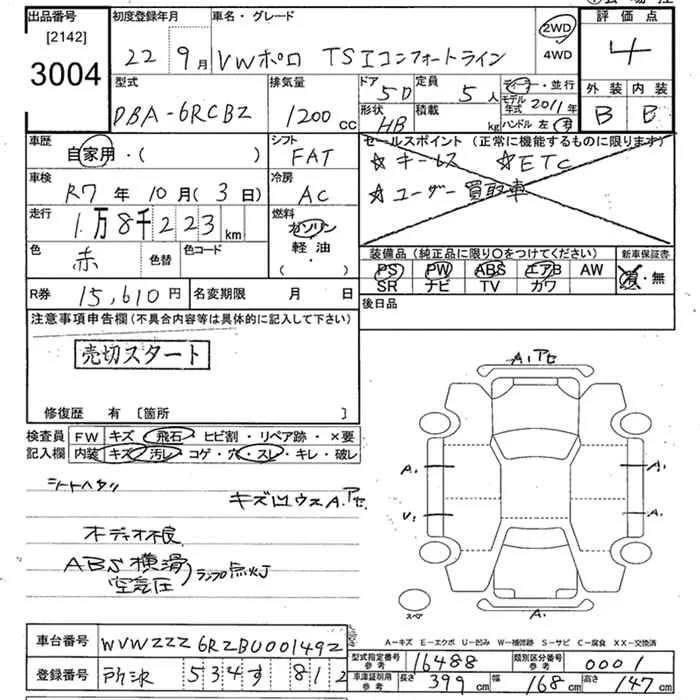 出品番号 初度登録年月 車名・グレード 評価点
[2142]
3004
22 9月 VWポロ TSIコンフォートライン 2WD 4WD 4
型式 排気量 ドア 定員 ディーラー・並行 外装 内装
DBA-6RCBZ 1200cc 5D 5人 モデル年式 2011年 B B
形状 HB 積載 kg ハンドル 左・右
車歴 シフト セールスポイント (正常に機能するものに限ります)
自家用・( ) FAT ☆キーレス ☆ETC
車検 冷房 ☆ユーザー買取車
R7年10月(3日) AC
走行 燃料
1万8千223km ガソリン
軽油・( )
色 赤 色替 色コード
装備品 (純正品に限り○をつけてください) 新車保証書
PS PW ABS エアB AW 有・無
SR ナビ TV ガワ
R券 15,610円 名変期限 月 日 後日品
注意事項申告欄 (不具合内容等は具体的に記入して下さい)
売切スタート
修復歴 有 [箇所 ]
検査員 FW キズ・飛石・ヒビ割・リペア跡・×要
記入欄 内装 キズ・汚レ・コゲ・穴・スレ・キレ・破レ
シートヘタリ
キズ凹ウスA.アセ
オーディオ不良
ABS 横滑 空気圧 ランプ点灯
A.アセ
A. A.
U. A.
スペア A.
A-キズ E-エクボ U-凹み W-補修跡 S-サビ C-腐食 XX-交換済
車台番号 WVWZZZ6RZBU001492
登録番号 所沢 534 す 812
型式指定番号 参考 16488 類別区分番号 参考 0001
車庫証明用 参考 長さ 399cm 幅 168cm 高さ 147cm